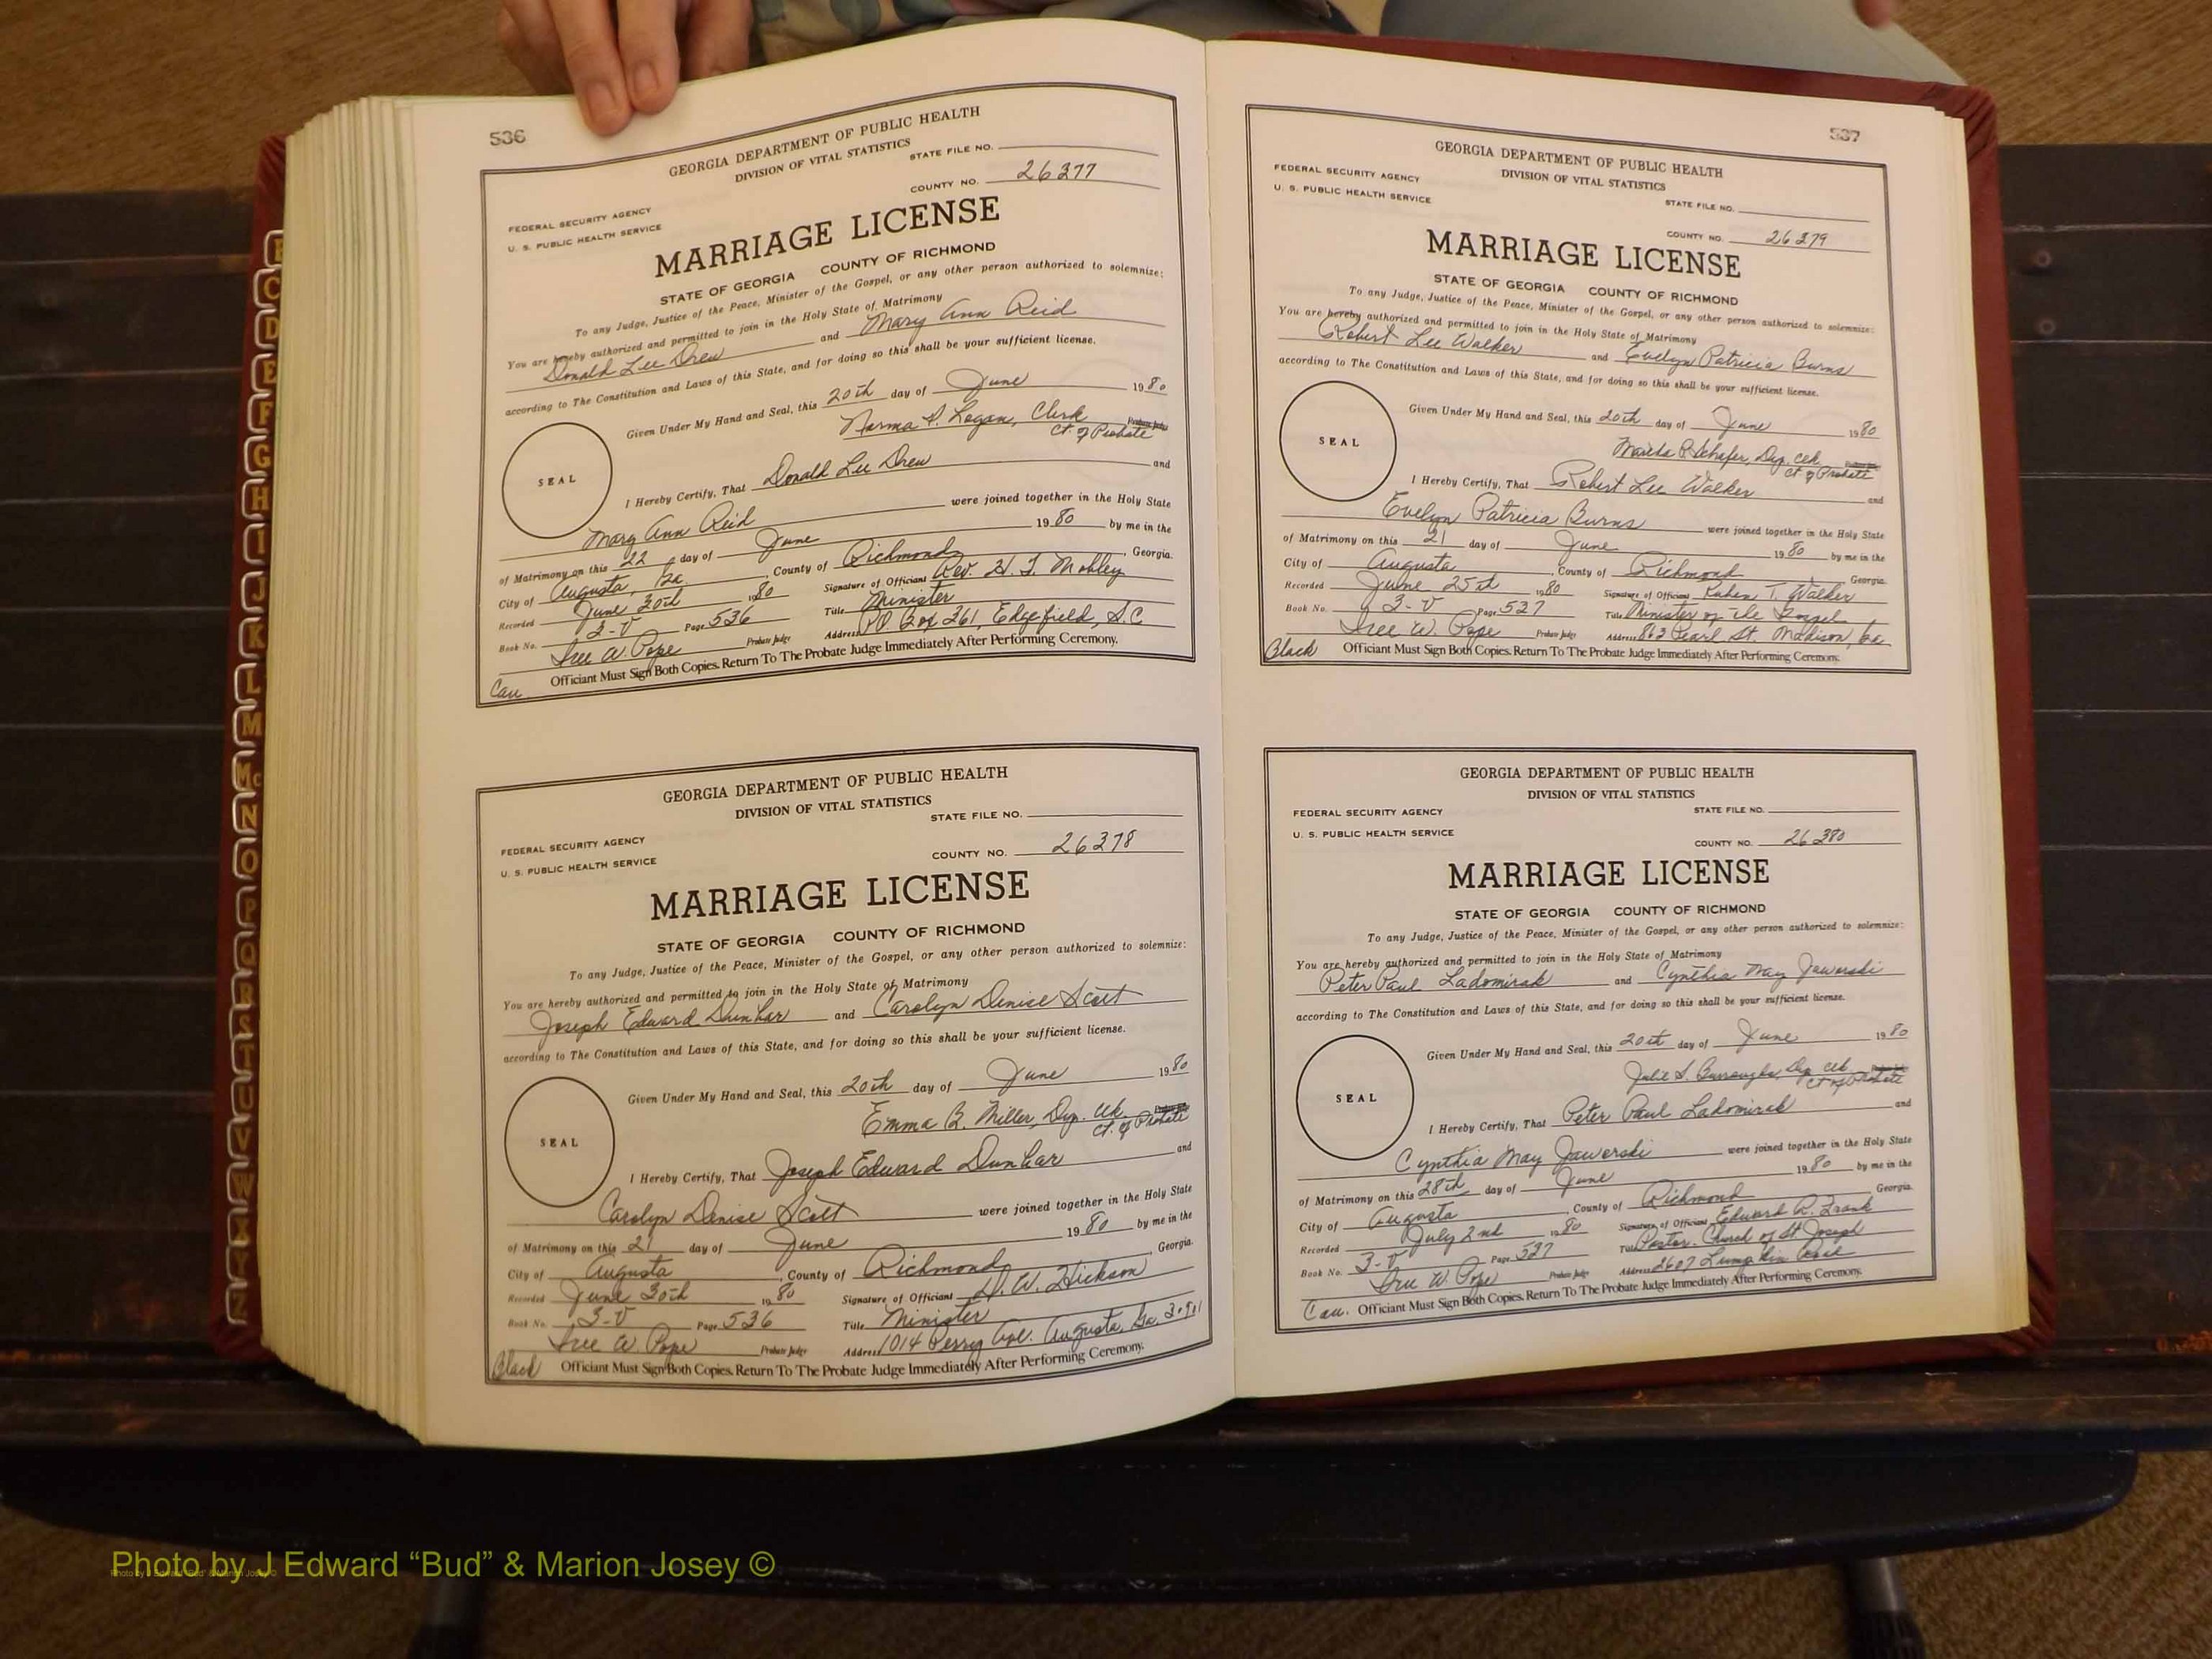 536
GEORGIA DEPARTMENT OF PUBLIC HEALTH
DIVISION OF VITAL STATISTICS
STATE FILE NO.
COUNTY NO. 26377
FEDERAL SECURITY AGENCY
U. S. PUBLIC HEALTH SERVICE
MARRIAGE LICENSE
STATE OF GEORGIA COUNTY OF RICHMOND
To any Judge, Justice of the Peace, Minister of the Gospel, or any other person authorized to solemnize:
You are hereby authorized and permitted to join in the Holy State of Matrimony
Donald Lee Drew and Mary Ann Reid
according to The Constitution and Laws of this State, and for doing so this shall be your sufficient license.
Given Under My Hand and Seal, this 20th day of June 1980
Norma P. Logan, Clerk
Ct. of Probate
SEAL
I Hereby Certify, That Donald Lee Drew and
Mary Ann Reid were joined together in the Holy State
of Matrimony on this 22 day of June 1980 by me in the
City of Augusta, Ga. , County of Richmond , Georgia.
Recorded June 30th 1980 Signature of Officiant Rev. H. J. Mobley
Book No. 3-V Page 536 Title Minister
Iree W. Pope Probate Judge Address P.O. Box 261, Edgefield, S.C
Cau Officiant Must Sign Both Copies. Return To The Probate Judge Immediately After Performing Ceremony.
GEORGIA DEPARTMENT OF PUBLIC HEALTH
DIVISION OF VITAL STATISTICS
STATE FILE NO.
FEDERAL SECURITY AGENCY
U. S. PUBLIC HEALTH SERVICE
COUNTY NO. 26378
MARRIAGE LICENSE
STATE OF GEORGIA COUNTY OF RICHMOND
To any Judge, Justice of the Peace, Minister of the Gospel, or any other person authorized to solemnize:
You are hereby authorized and permitted to join in the Holy State of Matrimony
Joseph Edward Dunbar and Carolyn Denise Scott
according to The Constitution and Laws of this State, and for doing so this shall be your sufficient license.
Given Under My Hand and Seal, this 20th day of June 1980
Emma B. Miller, Dep. Clk.
Ct. of Probate
SEAL
I Hereby Certify, That Joseph Edward Dunbar and
Carolyn Denise Scott were joined together in the Holy State
of Matrimony on this 21 day of June 1980 by me in the
City of Augusta , County of Richmond , Georgia.
Recorded June 30th 1980 Signature of Officiant H. W. Hickson
Book No. 3-V Page 536 Title Minister
Iree W. Pope Probate Judge Address 1014 Perry Ave. Augusta, Ga. 30901
Black Officiant Must Sign Both Copies. Return To The Probate Judge Immediately After Performing Ceremony.
537
GEORGIA DEPARTMENT OF PUBLIC HEALTH
DIVISION OF VITAL STATISTICS
FEDERAL SECURITY AGENCY
U. S. PUBLIC HEALTH SERVICE
STATE FILE NO.
COUNTY NO. 26379
MARRIAGE LICENSE
STATE OF GEORGIA COUNTY OF RICHMOND
To any Judge, Justice of the Peace, Minister of the Gospel, or any other person authorized to solemnize:
You are hereby authorized and permitted to join in the Holy State of Matrimony
Robert Lee Walker and Evelyn Patricia Burns
according to The Constitution and Laws of this State, and for doing so this shall be your sufficient license.
Given Under My Hand and Seal, this 20th day of June 1980
Martha P. Schafer, Dep. Clk.
Ct. of Probate
SEAL
I Hereby Certify, That Robert Lee Walker and
Evelyn Patricia Burns were joined together in the Holy State
of Matrimony on this 21 day of June 1980 by me in the
City of Augusta , County of Richmond Georgia.
Recorded June 25th 1980 Signature of Officiant Ruben T. Walker
Book No. 3-V Page 537 Title Minister of the Gospel
Iree W. Pope Probate Judge Address 863 Pearl St. Madison, Ga.
Black Officiant Must Sign Both Copies. Return To The Probate Judge Immediately After Performing Ceremony.
GEORGIA DEPARTMENT OF PUBLIC HEALTH
DIVISION OF VITAL STATISTICS
FEDERAL SECURITY AGENCY
STATE FILE NO.
U. S. PUBLIC HEALTH SERVICE
COUNTY NO. 26380
MARRIAGE LICENSE
STATE OF GEORGIA COUNTY OF RICHMOND
To any Judge, Justice of the Peace, Minister of the Gospel, or any other person authorized to solemnize:
You are hereby authorized and permitted to join in the Holy State of Matrimony
Peter Paul Ladomirak and Cynthia May Jaworski
according to The Constitution and Laws of this State, and for doing so this shall be your sufficient license.
Given Under My Hand and Seal, this 20th day of June 1980
Julie S. Burroughs, Dep. Clk.
Ct. of Probate
SEAL
I Hereby Certify, That Peter Paul Ladomirak and
Cynthia May Jaworski were joined together in the Holy State
of Matrimony on this 28th day of June 1980 by me in the
City of Augusta , County of Richmond Georgia.
Recorded July 2nd 1980 Signature of Officiant Edward R. Frank
Book No. 3-V Page 537 Title Pastor. Church of St Joseph
Iree W. Pope Probate Judge Address 2607 Lumpkin Road
Cau. Officiant Must Sign Both Copies. Return To The Probate Judge Immediately After Performing Ceremony.
C
D
E
F
G
H
I
J
K
L
M
Mc
N
O
P
Q
R
S
T
U
V
W
X
Y
Z
Photo by J Edward “Bud” & Marion Josey ©